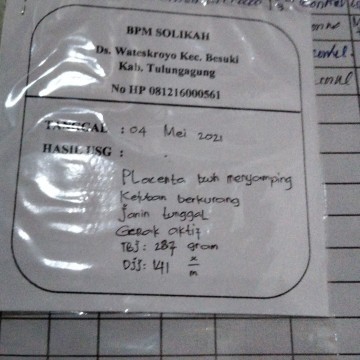 BPM SOLIKAH
Ds. Wateskroyo Kec. Besuki
Kab. Tulungagung
No HP 081216000561
TANGGAL : 04 Mei 2021
HASIL USG :
Placenta bwh menyamping
Ketuban berkurang
Janin tunggal
Gerak aktif
TBJ : 287 gram
DJJ : 141 x/m